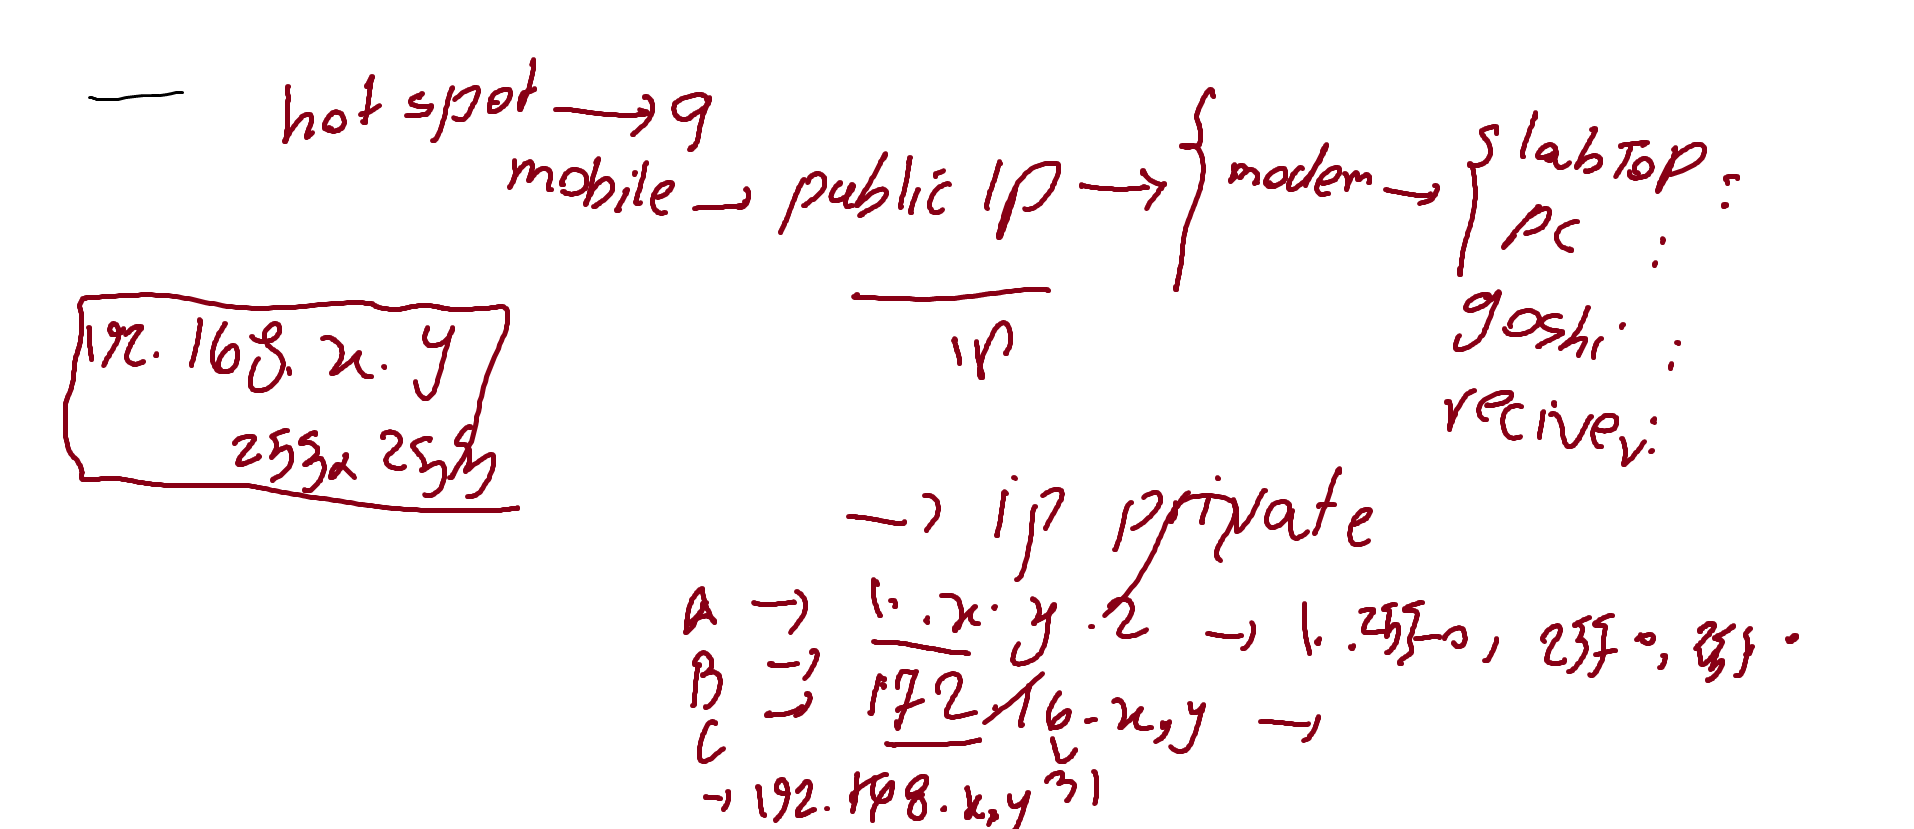 hot spot → 9
mobile → public IP → { modem → { labTop :
pc :
goshi :
reciver :
192. 168. x. y
255 x 255
ip
→ ip private
A → 1. .x. y .2 → 1. .255
B →
→ 172.16-x,y →
C
31
→ 192.168.x,y